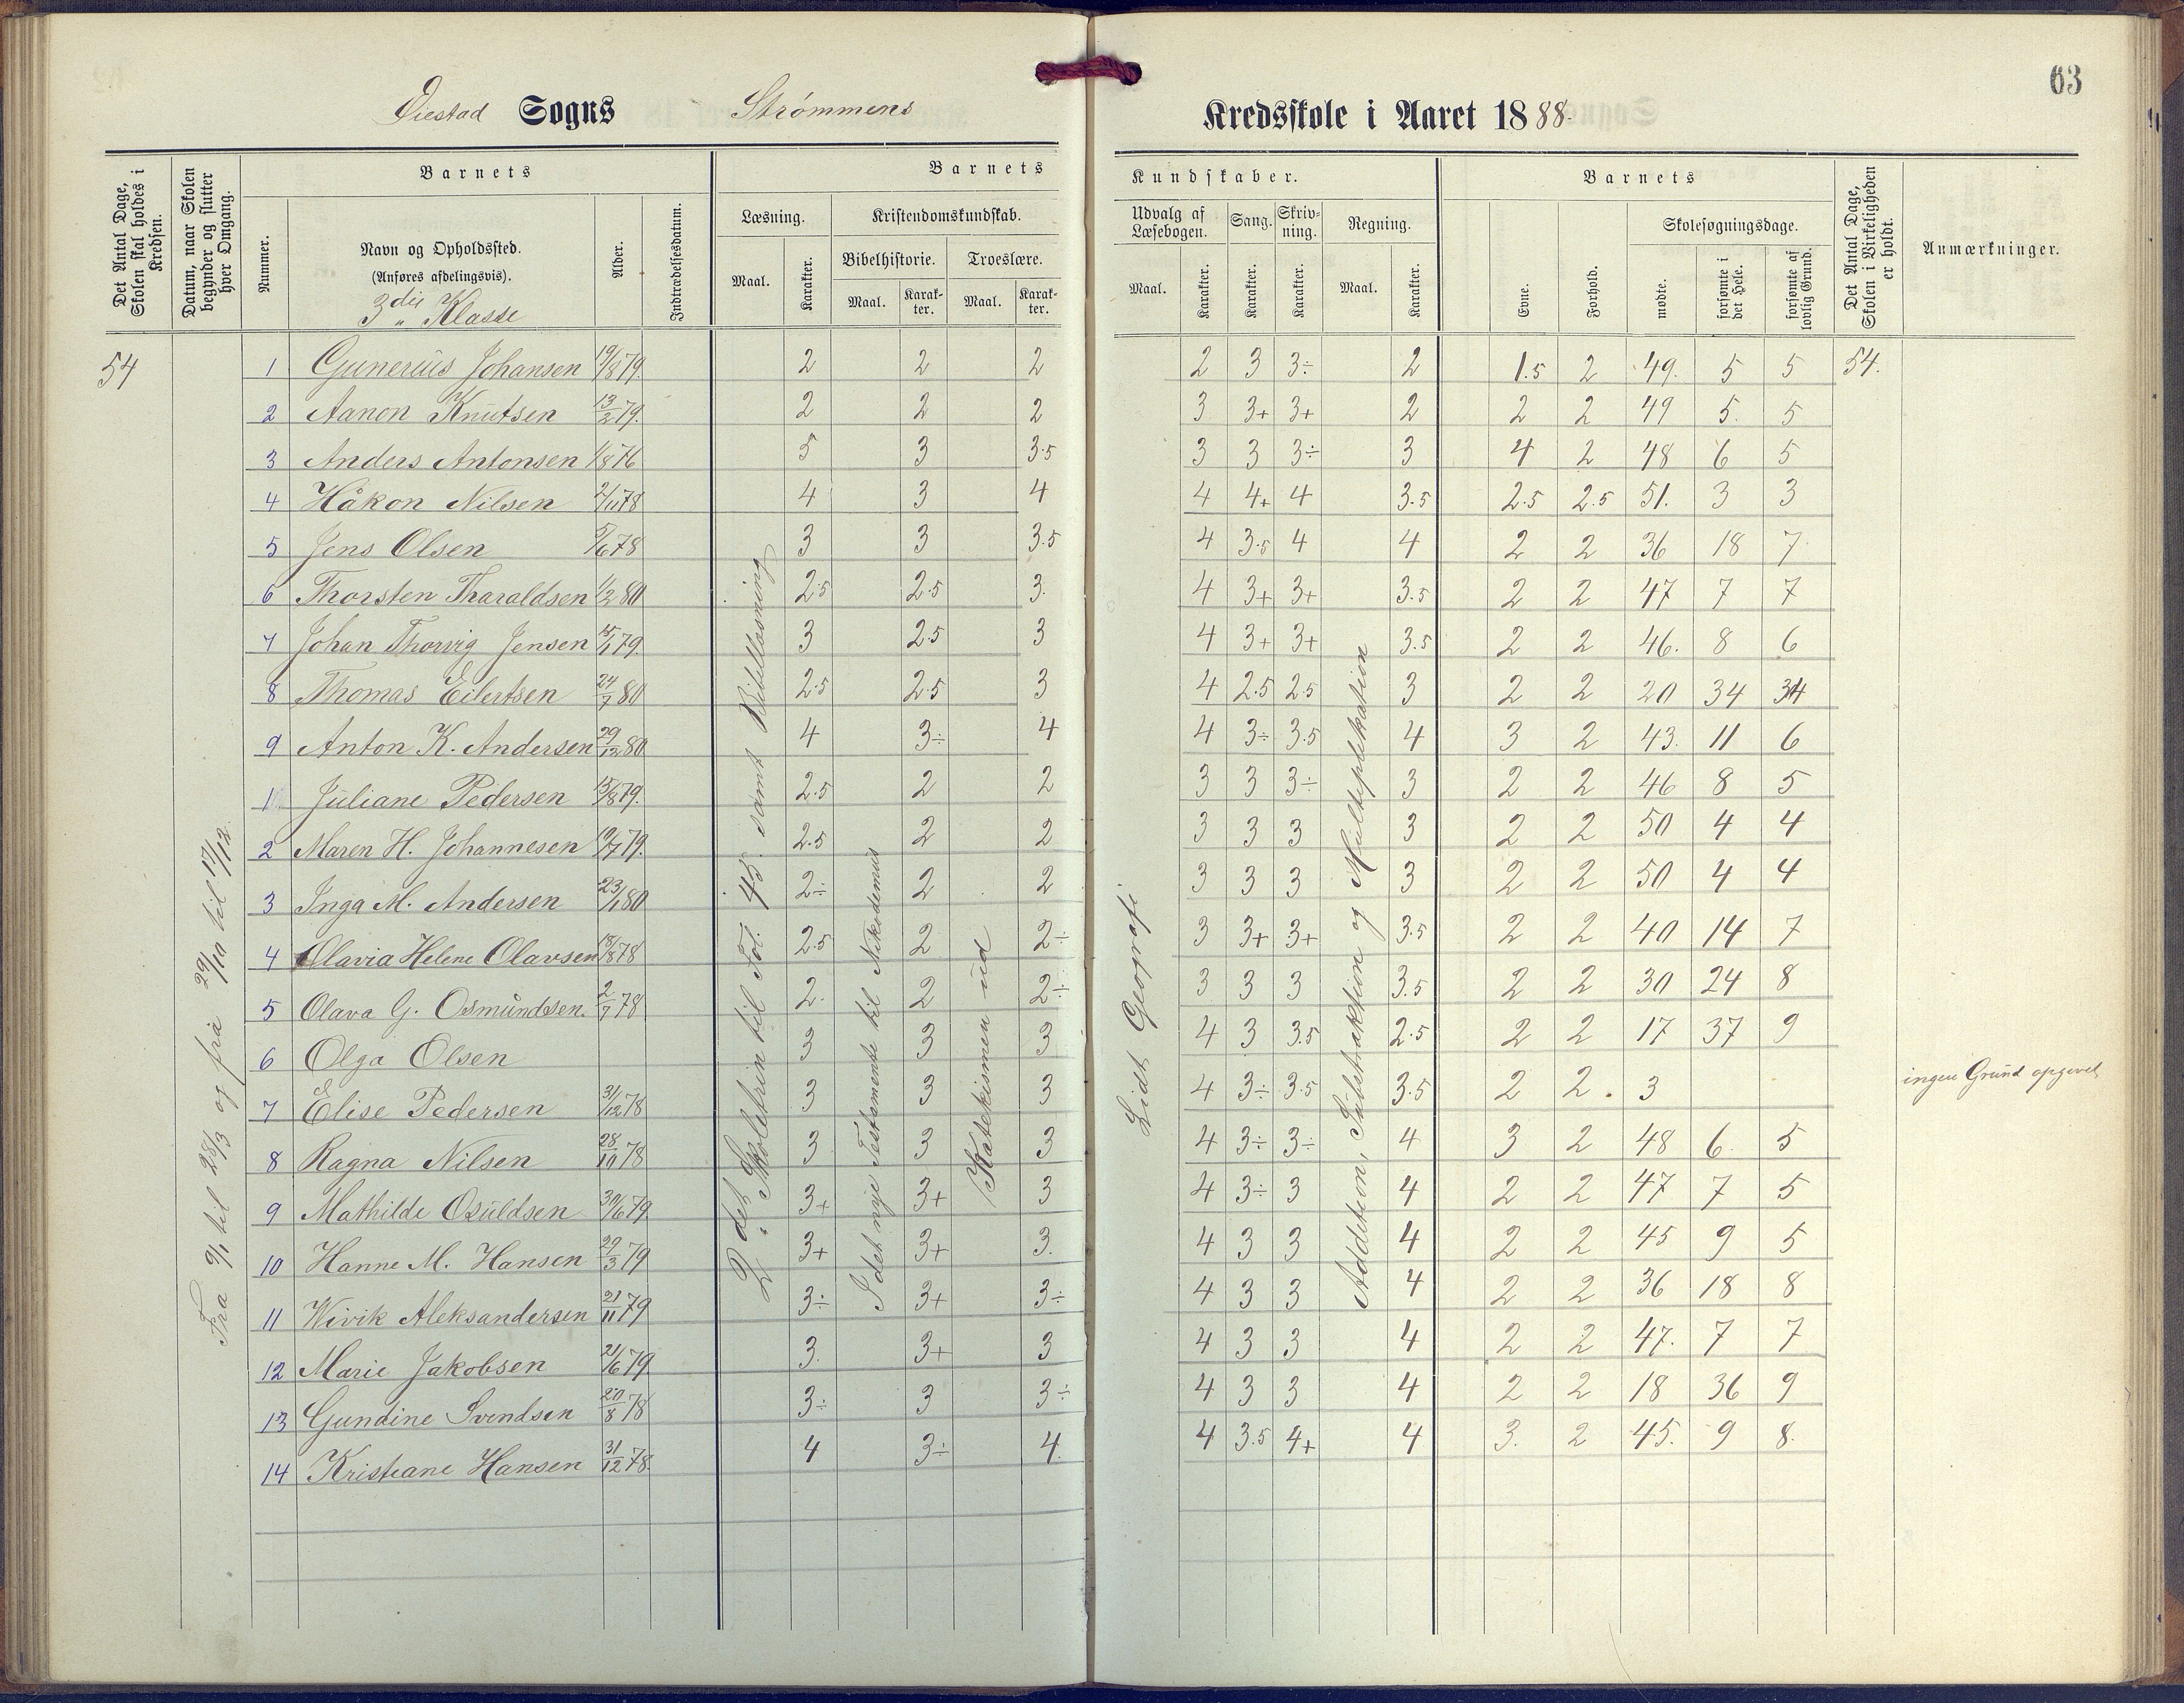 63
Øiestad Sogns Strømmens Kredsskole i Aaret 1888.
Det Antal Dage, Skolen skal holdes i Kredsen.
Datum, naar Skolen begynder og slutter hver Omgang.
Barnets
Nummer.
Navn og Opholdssted.
(Anføres afdelingsvis).
3die Klasse
Alder.
Indtrædelsesdatum.
Barnets Kundskaber.
Læsning.
Maal.
Karakter.
Kristendomskundskab.
Bibelhistorie.
Maal.
Karakter.
Troeslære.
Maal.
Karakter.
Udvalg af Læsebogen.
Maal.
Karakter.
Sang.
Karakter.
Skrivning.
Karakter.
Regning.
Maal.
Karakter.
Barnets
Evne.
Forhold.
Skolesøgningsdage.
mødte.
forsømte i det Hele.
forsømte af lovlig Grund.
Det Antal Dage, Skolen i Virkeligheden er holdt.
Anmærkninger.
54
Fra 9/1 til 28/3 og fra 29/10 til 17/12.
2det Skoletrin til Fol. 45. samt Bibellæsning
I det nye Testamente til Nikodemus
Katekismen ud
Lidt Geografi
Addition, Subtraktion og Multiplikation
1 Gunerius Johansen 19/8 79. 2 2 2 2 3 3÷ 2 1.5 2 49. 5 5 54.
2 Aanon Knutsen 13/2 79. 2 2 2 3 3+ 3+ 2 2 2 49 5. 5
3 Anders Antonsen 1/8 76 5 3 3.5 3 3 3÷ 3 4 2 48 6 5
4 Håkon Nilsen 2/11 78 4 3 4 4 4+ 4 3.5 2.5 2.5 51. 3 3
5 Jens Olsen 5/6 78 3 3 3.5 4 3.5 4 4 2 2 36 18 7
6 Thorsten Tharaldsen 1/2 80 2.5 2.5 3. 4 3+ 3+ 3.5 2 2 47 7 7
7 Johan Thorvig Jensen 15/1 79. 3 2.5 3 4 3+ 3+ 3.5 2 2 46. 8 6
8 Thomas Eilertsen 24/7 80 2.5 2.5 3 4 2.5 2.5 3 2 2 20 34 34
9 Anton K. Andersen 29/12 80 4 3÷ 4 4 3÷ 3.5 4 3 2 43. 11 6
1 Juliane Pedersen 15/8 79. 2.5 2 2 3 3 3÷ 3 2 2 46 8 5
2 Maren H. Johannesen 19/7 79. 2.5 2 2 3 3 3 3 2 2 50 4 4
3 Inga M. Andersen 23/1 80 2÷ 2 2 3 3 3 3 2 2 50 4 4
4 Olavia Helene Olavsen 13/8 78 2.5 2 2÷ 3 3+ 3+ 3.5 2 2 40 14 7
5 Olava G. Osmundsen. 2/7 78 2. 2 2÷ 3 3 3 3.5 2 2 30 24 8
6 Olga Olsen 3 3 3 4 3 3.5 2.5 2 2 17 37 9
7 Elise Pedersen 31/12 78 3 3 3 4 3÷ 3.5 3.5 2 2 3 ingen Grund opgivet
8 Ragna Nilsen 28/10 78 3 3 3 4 3÷ 3÷ 4 3 2 48 6 5
9 Mathilde Osuldsen 30/6 79. 3+ 3+ 3 4 3÷ 3 4 2 2 47 7 5
10 Hanne M. Hansen 29/3 79 3+ 3+ 3. 4 3 3 4 2 2 45 9 5
11 Wivik Aleksandersen 21/11 79 3÷ 3+ 3÷ 4 3 3 4 2 2 36 18 8
12 Marie Jakobsen 21/6 79. 3. 3+ 3 4 3 3 4 2 2 47. 7 7
13 Gundine Svendsen 20/8 78 3÷ 3 3÷ 4 3 3 4 2 2 18 36 9
14 Kristiane Hansen 31/12 78. 4 3÷ 4. 4 3.5 4+ 4 3. 2 45. 9 8.